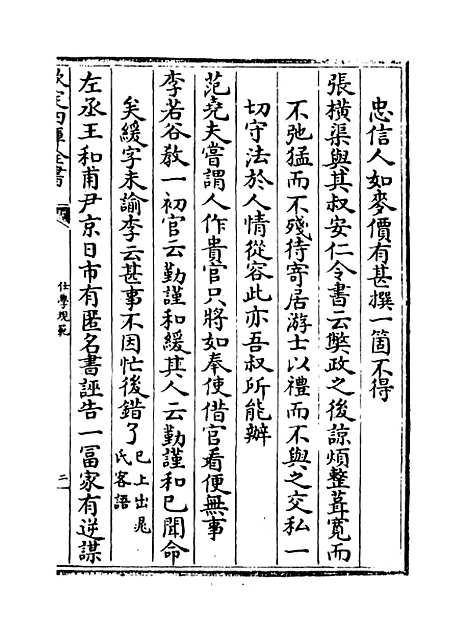 忠信人如麥價有甚撰一箇不得
張橫渠與其叔安仁令書云弊政之後諒煩整葺寛而
不弛猛而不殘待寄居游士以禮而不與之交私一
切守法於人情從容此亦吾叔所能辦
范堯夫嘗謂人作貴官只將如奉使借官看便無事
李若谷教一初官云勤謹和緩其人云勤謹和已聞命
矣緩字未諭李云甚事不因忙後錯了已上出晁氏客語
左丞王和甫尹京日市有匿名書誣告一冨家有逆謀
欽定四庫全書
仕學規範
二